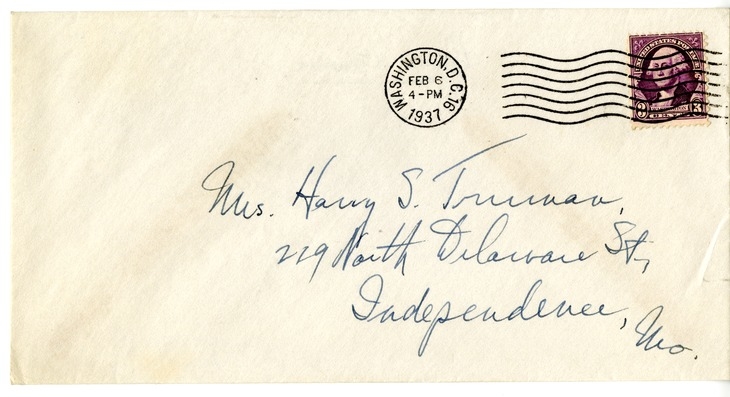 WASHINGTON, D.C. 16
FEB 6
4-PM
1937
UNITED STATES POSTAGE
3 3
Mrs. Harry S. Truman,
219 North Delaware St.,
Independence, Mo.